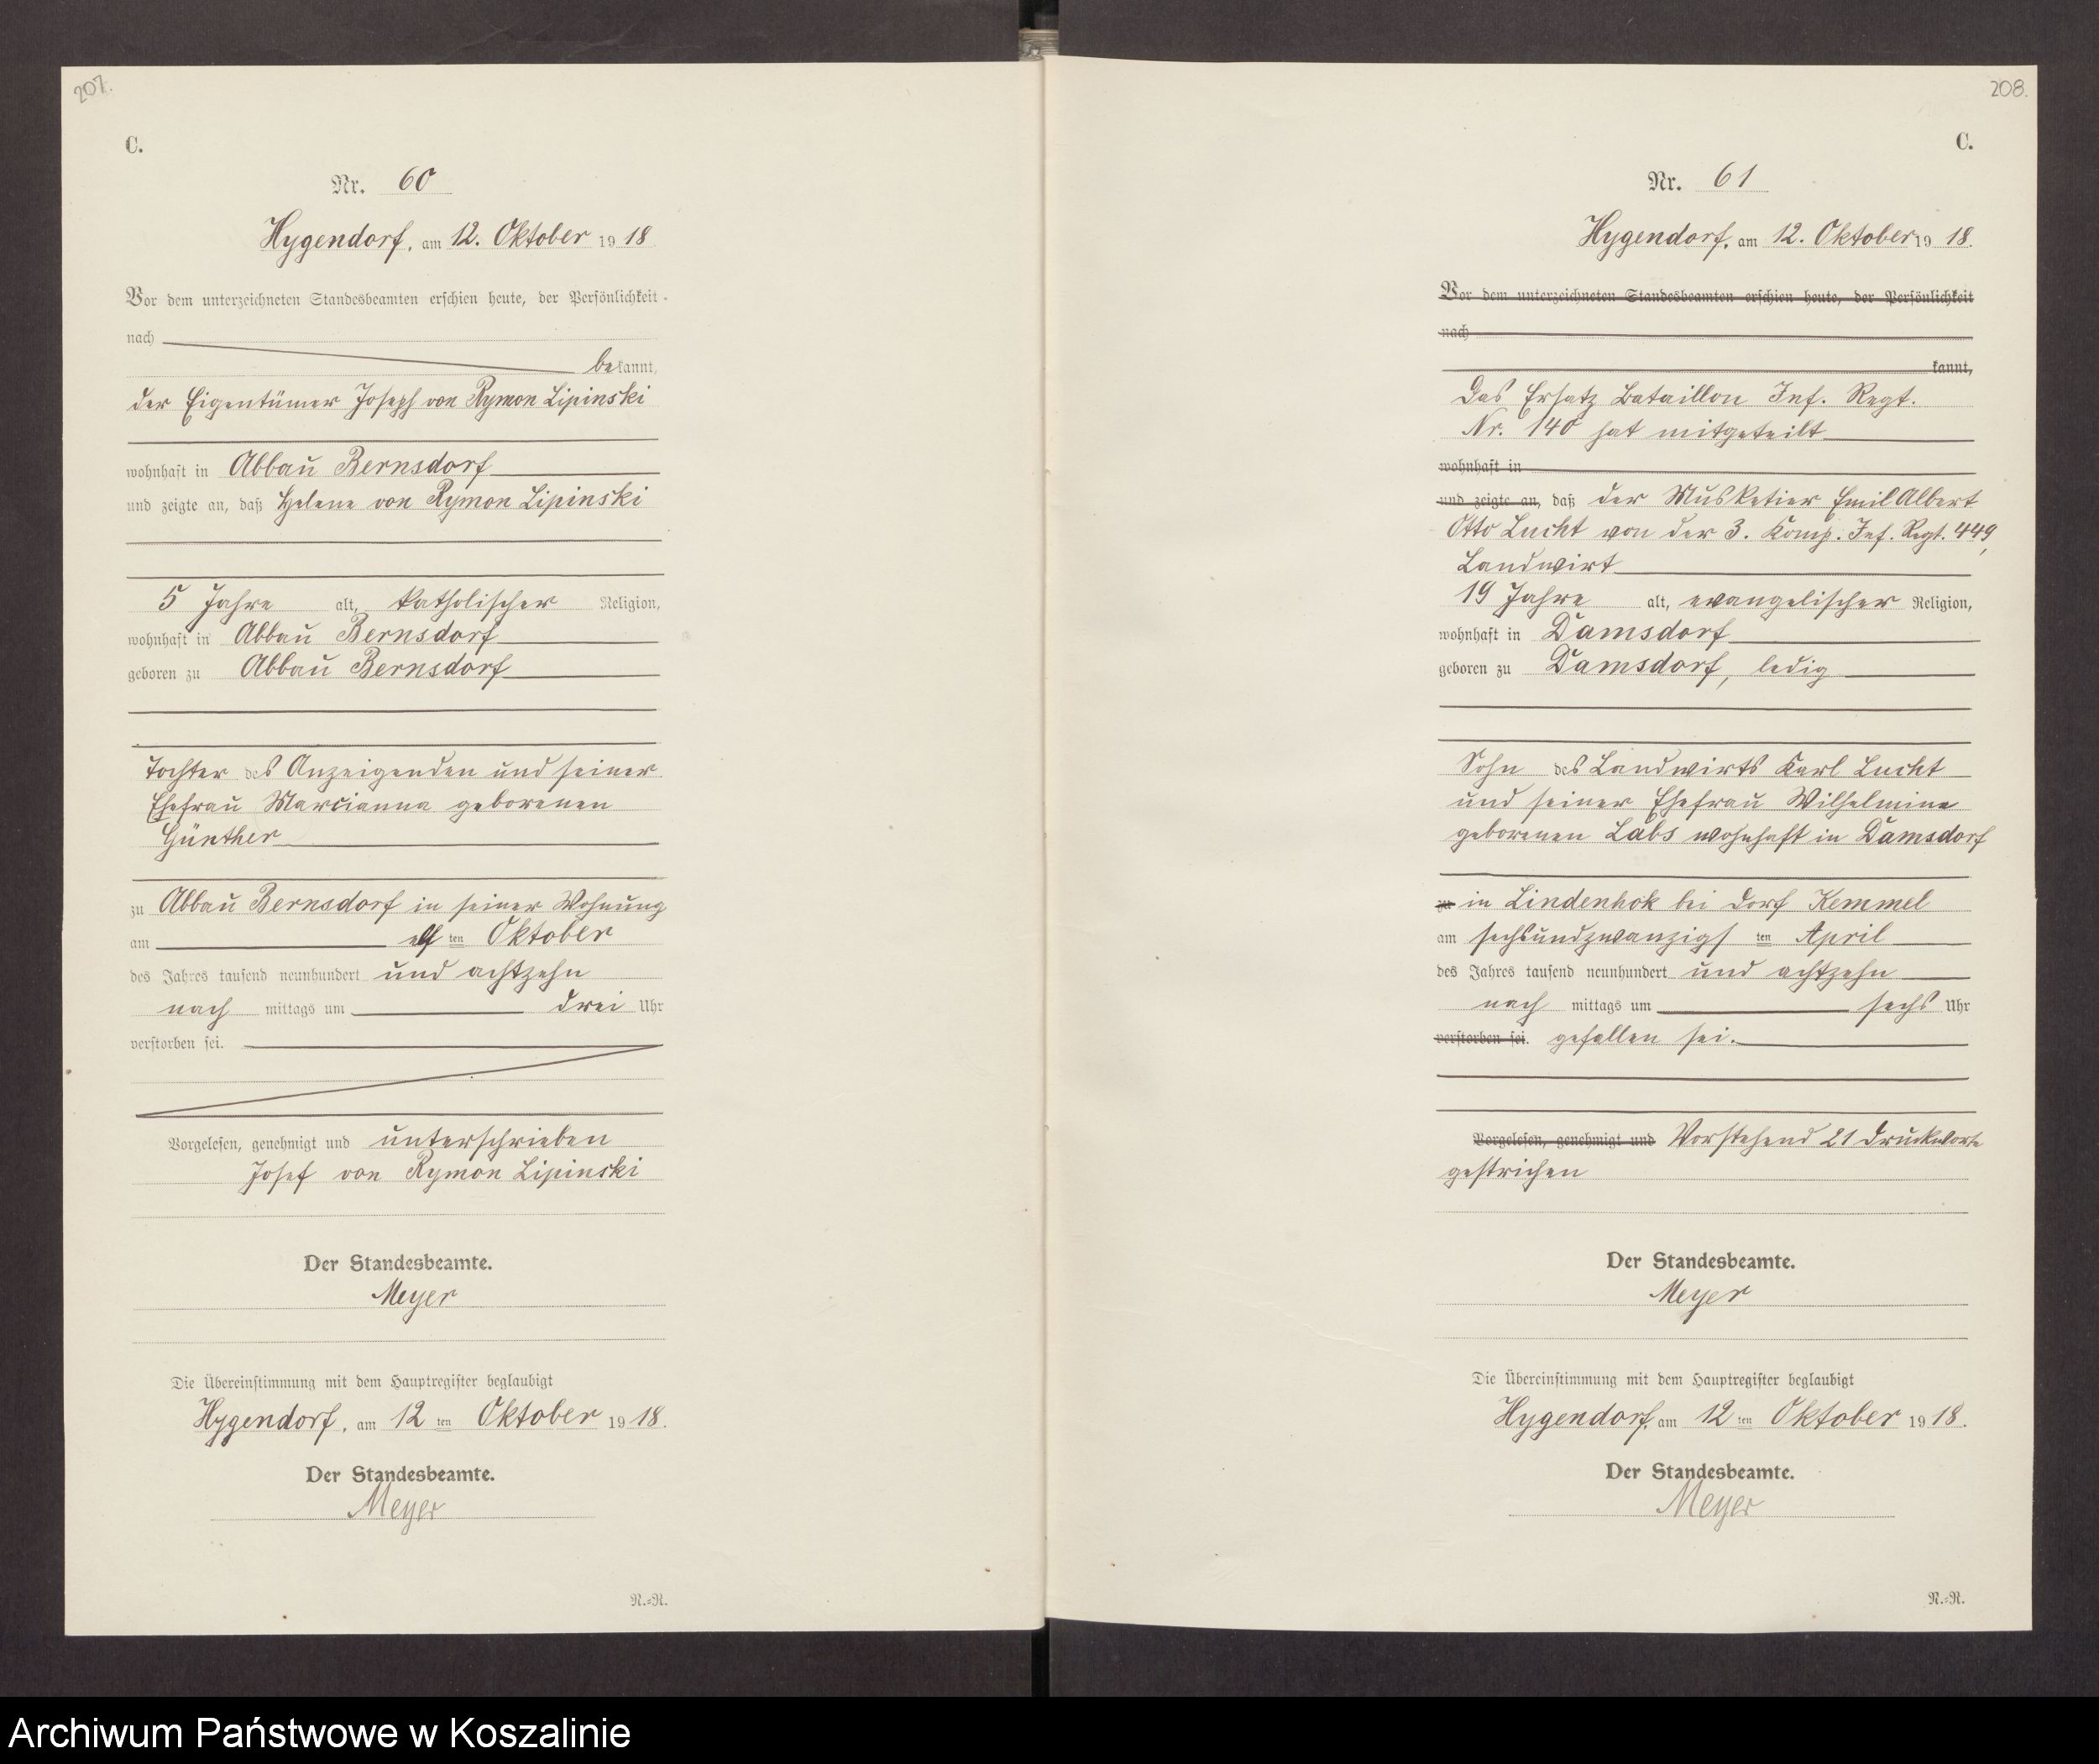 207.
C.
Nr. 60
Hygendorf, am 12. Oktober 1918
Vor dem unterzeichneten Standesbeamten erschien heute, der Persönlichkeit
nach
bekannt,
der Eigentümer Joseph von Rymon Lipinski
wohnhaft in Abbau Bernsdorf
und zeigte an, daß Helene von Rymon Lipinski
5 Jahre alt, katholischer Religion,
wohnhaft in Abbau Bernsdorf
geboren zu Abbau Bernsdorf
Tochter des Anzeigenden und seiner
Ehefrau Marcianna geborenen
Günther
zu Abbau Bernsdorf in seiner Wohnung
am elf ten Oktober
des Jahres tausend neunhundert und achtzehn
nach mittags um drei Uhr
verstorben sei.
Vorgelesen, genehmigt und unterschrieben
Josef von Rymon Lipinski
Der Standesbeamte.
Meyer
Die Übereinstimmung mit dem Hauptregister beglaubigt
Hygendorf, am 12 ten Oktober 1918.
Der Standesbeamte.
Meyer
N.=R.
208.
C.
Nr. 61
Hygendorf, am 12. Oktober 1918.
Vor dem unterzeichneten Standesbeamten erschien heute, der Persönlichkeit
nach
kannt,
Das Ersatz Bataillon Inf. Regt.
Nr. 140 hat mitgeteilt
wohnhaft in
und zeigte an, daß der Musketier Emil Albert
Otto Lucht von der 3. Komp. Inf. Regt. 449,
Landwirt
19 Jahre alt, evangelischer Religion,
wohnhaft in Damsdorf
geboren zu Damsdorf, ledig
Sohn des Landwirts Karl Lucht
und seiner Ehefrau Wilhelmine
geborenen Labs wohnhaft in Damsdorf
zu in Lindenhok bei Dorf Kemmel
am sechsundzwanzigs ten April
des Jahres tausend neunhundert und achtzehn
nach mittags um sechs Uhr
verstorben sei. gefallen sei.
Vorgelesen, genehmigt und Vorstehend 21 Druckworte
gestrichen
Der Standesbeamte.
Meyer
Die Übereinstimmung mit dem Hauptregister beglaubigt
Hygendorf, am 12 ten Oktober 1918.
Der Standesbeamte.
Meyer
N.=R.
Archiwum Państwowe w Koszalinie